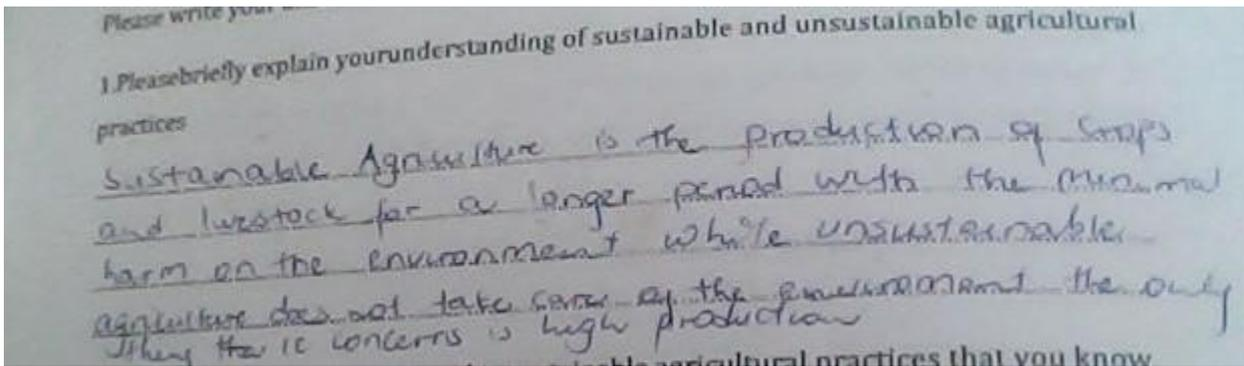 Please write your
1.Pleasebriefly explain yourunderstanding of sustainable and unsustainable agricultural
practices
Sustanable Agriculture is the production of crops
and livestock for a longer period with the minimal
harm on the environment while unsustainable
agriculture does not take care of the environment the only
thing the concerns is high production
agricultural practices that you know